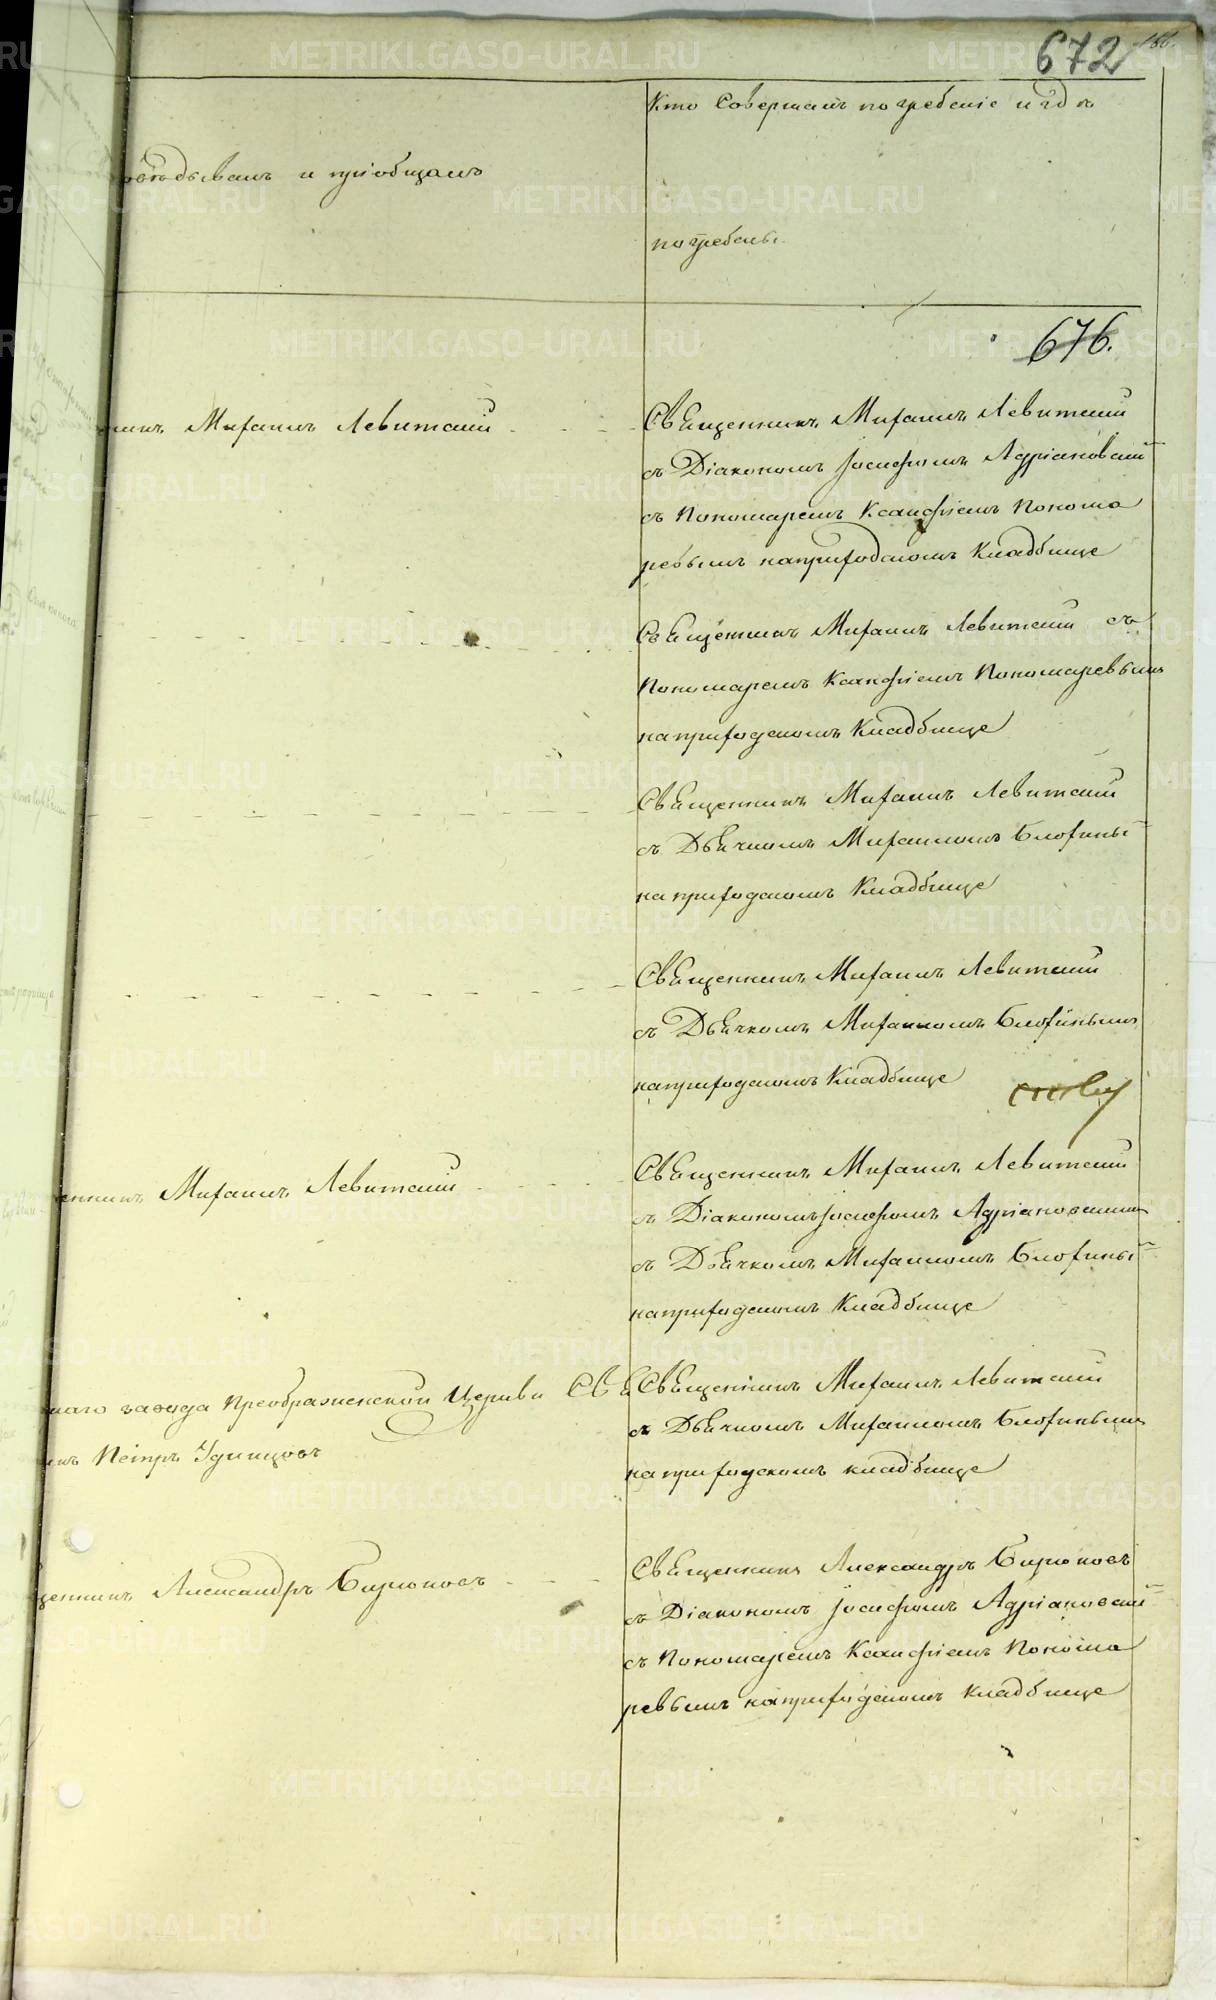 672
Кто Совершалъ погребеніе и гдѣ
овѣдывалъ и пріобщалъ
погребены.
676.
никъ Михаилъ Левитскій
Священникъ Михаилъ Левитскій
съ Діакономъ Іосифомъ Адріановскимъ
съ Пономаремъ Ксанфіемъ Понома
ревымъ на приходскомъ Кладбище
Священникъ Михаилъ Левитскій съ
Пономаремъ Ксанфіемъ Пономаревымъ
на приходскомъ Кладбище
Священникъ Михаилъ Левитскій
съ Дьячкомъ Михаиломъ Блохины
на приходскомъ Кладбище
Священникъ Михаилъ Левитскій
съ Дьячкомъ Михаиломъ Блохинымъ
на приходскомъ Кладбище
енникъ Михаилъ Левитскій
Священникъ Михаилъ Левитскій
съ Діакономъ Іосифомъ Адріановскимъ
съ Дьячкомъ Михаиломъ Блохины
на приходскомъ Кладбище
каго завода Преображенской Церкви Свя
къ Петръ Удинцовъ
Священникъ Михаилъ Левитскій
съ Дьячкомъ Михаиломъ Блохинымъ
на приходскомъ кладбище
щенникъ Александръ Бирюковъ
Священникъ Александръ Бирюковъ
съ Діакономъ Іосифомъ Адріановскимъ
съ Пономаремъ Ксанфіемъ Понома
ревымъ на приходскомъ кладбище
METRIKI.GASO-URAL.RU